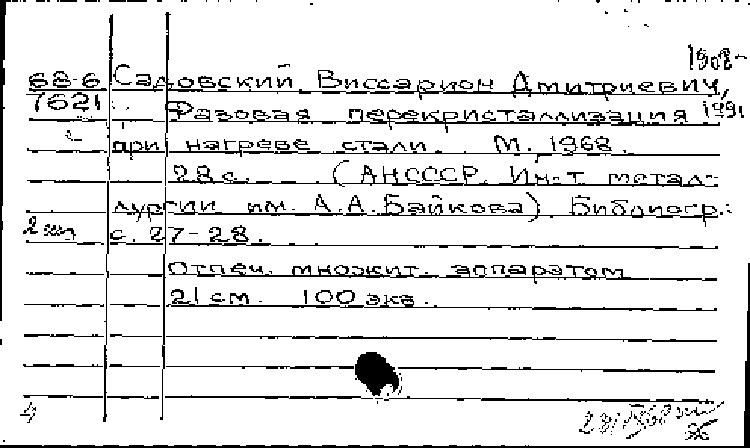 1908-
68-6 Садовский Виссарион Дмитриевич,
7621 Фазовая перекристаллизация 1991
при нагреве стали. М. 1968.
28 с. (АНСССР. Ин-т метал-
лургии им. А.А.Байкова) Библиогр.:
2 экз с. 27-28.
Отпеч. множит. аппаратом
21 см. 100 экз.
4